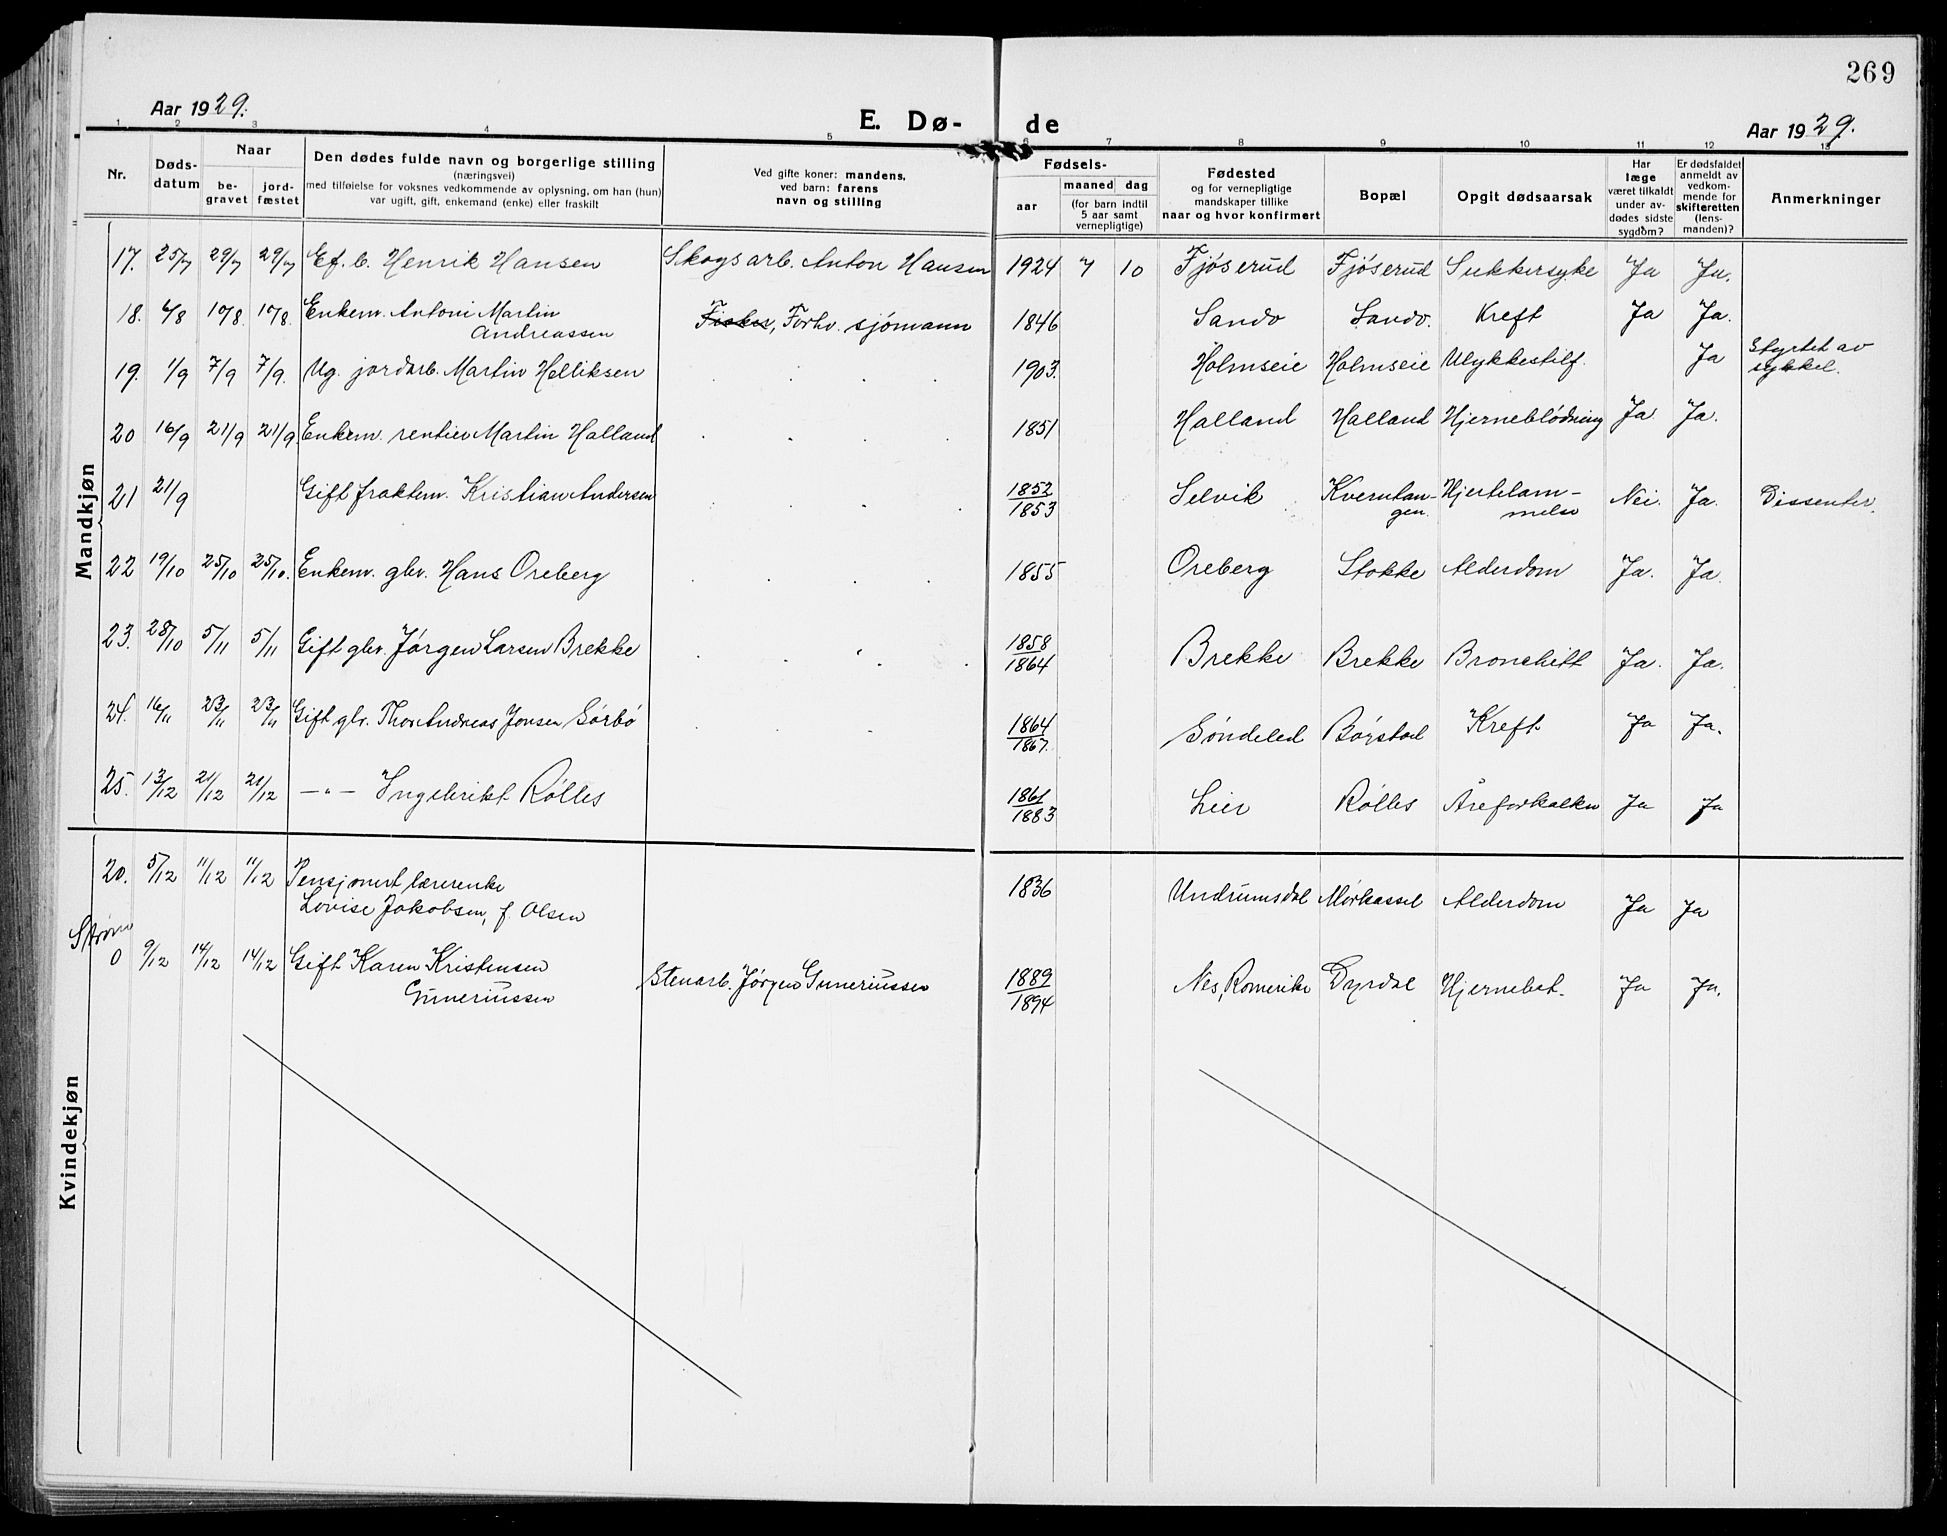 269
Aar 1929.
E. Dø- de
Aar 1929.
1 2 3 4 5 6 7 8 9 10 11 12 13
Nr.
Døds-
datum
Naar
be-
gravet
jord-
fæstet
Den dødes fulde navn og borgerlige stilling
(næringsvei)
med tilføielse for voksnes vedkommende av oplysning, om han (hun)
var ugift, gift, enkemand (enke) eller fraskilt
Ved gifte koner: mandens,
ved barn: farens
navn og stilling
Fødsels-
aar
maaned dag
(for barn indtil
5 aar samt
vernepligtige)
Fødested
og for vernepligtige
mandskaper tillike
naar og hvor konfirmert
Bopæl
Opgit dødsaarsak
Har
læge
været tilkaldt
under av-
dødes sidste
sygdom?
Er dødsfaldet
anmeldt av
vedkom-
mende for
skifteretten
(lens-
manden)?
Anmerkninger
Mandkjøn
17. 25/7 29/7 29/7 Ef. b. Henrik Hansen Skogsarb. Anton Hansen 1924 7 10 Fjøserud Fjøserud Sukkersyke Ja Ja.
18. 4/8 10/8 10/8 Enkem. Antoni Martin
Andreassen Fisker, Forhv. sjømann 1846 Sando Sando. Kreft Ja Ja.
19. 1/9 7/9 7/9. Ug. jordarb. Martin Helliksen 1903. Holmseie Holmseie Ulykkestilf. Ja Styrtet av
sykkel.
20 16/9 21/9 21/9 Enkem. rentier Martin Halland 1851 Halland Halland Hjerneblødning Ja Ja.
21 21/9 Gift fraktem. Kristian Andersen 1852/1853 Selvik Kverntan-
gen Hjertelam-
melse Nei. Ja. Dissenter.
22 19/10 25/10 25/10. Enkem. gbr. Hans Oreberg 1855 Oreberg Stokke Alderdom Ja. Ja.
23. 28/10 5/11 5/11 Gift gbr. Jørgen Larsen Brekke 1858/1864 Brekke Brekke Bronchitt Ja. Ja.
24. 16/11 23/11 23/11 Gift gbr. Thor Andreas Jonsen Sørbø 1864/1867. Søndeled Børstad Kreft Ja Ja.
25. 13/12 21/12 21/12 —"— Ingebrikt Rølles 1861/1883 Lier Rølles Åreforkalkn Ja Ja
Kvindekjøn
20. 5/12 11/12 11/12 Pensjonert lærerenke
Lovise Jakobsen, f. Olsen 1836 Undrumsdal Mørkassel Alderdom Ja Ja
Strøm
0 9/12 14/12 14/12 Gift Karen Kristensen
Guneriussen Stenarb. Jørgen Guneriussen 1889/1894 Nes, Romerike Dyrdal Hjernebet. Ja Ja.